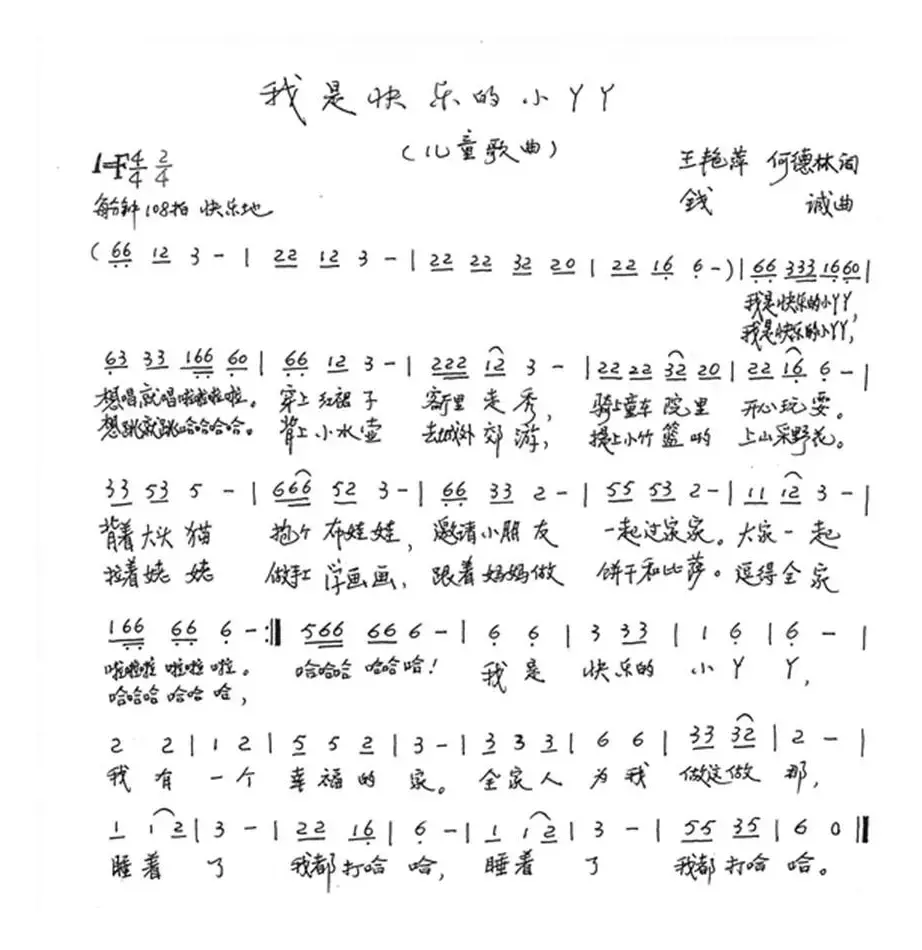 我是快乐的小丫丫
(儿童歌曲)
1=F 4/4 2/4
王艳萍 何德林词
每分钟108拍 快乐地
钱 诚曲
( 66 12 3 - | 22 12 3 - | 22 22 32 20 | 22 16 6 - ) | 66 333 16 60 |
我是快乐的小丫丫,
我是快乐的小丫丫,
63 33 166 60 | 66 12 3 - | 222 12 3 - | 22 22 32 20 | 22 16 6 - |
想唱就唱啦啦啦啦。 穿上红裙子 客厅里走秀, 骑上童车院里 开心玩耍。
想跳就跳哈哈哈哈。 背上小水壶 去城外郊游, 提上小竹篮哟 上山采野花。
33 53 5 - | 666 52 3 - | 66 33 2 - | 55 53 2 - | 11 12 3 - |
背着大头猫 抱个布娃娃, 邀请小朋友 一起过家家。 大家一起
拉着姥姥 做手工学画画, 跟着妈妈做 饼干和比萨。 逗得全家
166 66 6 - :‖ 566 66 6 - | 6 6 | 3 33 | 1 6 | 6 - |
啦啦啦 啦啦 啦。 哈哈哈 哈哈哈! 我是 快乐的 小丫 丫,
哈哈哈 哈哈 哈,
2 2 | 1 2 | 5 5 2 | 3 - | 3 3 3 | 6 6 | 33 32 | 2 - |
我有 一个 幸福的 家。 全家人 为我 做这做 那,
1 1 2 | 3 - | 22 16 | 6 - | 1 1 2 | 3 - | 55 35 | 6 0 ‖
睡着 了 我都打哈 哈, 睡着 了 我都打哈 哈。